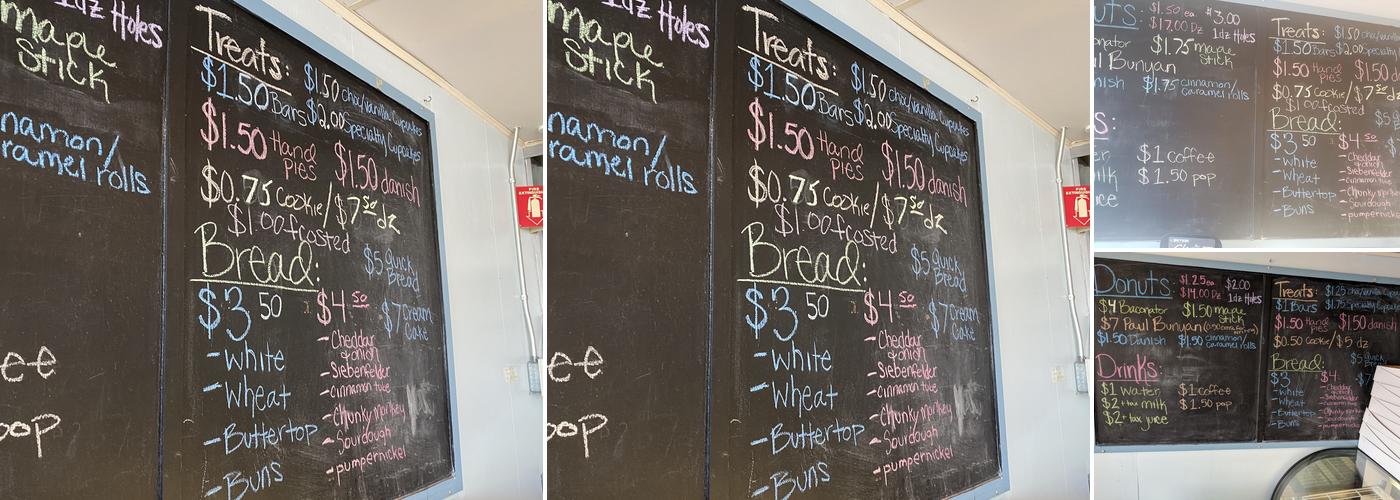 1dz Holes
maple
stick
namon/
ramel rolls
ce
pop
Treats:
$1.50 Bars
$1.50 choc/vanilla Cupcakes
$2.00 Specialty Cupcakes
$1.50 Hand
pies
$1.50 danish
$0.75 Cookie/$7.50 dz
$1.00 frosted
Bread:
$5 Quick
Bread
$3 50
$4 50
$7 Dream
Cake
-white
-wheat
-Buttertop
-Buns
-Cheddar
&onion
-Siebenfelder
-cinnamon tube
-Chunky monkey
-Sourdough
-pumpernickel
1dz Holes
maple
stick
namon/
ramel rolls
ce
pop
Treats:
$1.50 Bars
$1.50 choc/vanilla Cupcakes
$2.00 Specialty Cupcakes
$1.50 Hand
pies
$1.50 danish
$0.75 Cookie/$7.50 dz
$1.00 frosted
Bread:
$5 Quick
Bread
$3 50
$4 50
$7 Dream
Cake
-white
-wheat
-Buttertop
-Buns
-Cheddar
&onion
-Siebenfelder
-cinnamon tube
-Chunky monkey
-Sourdough
-pumpernickel
FIRE
EXTINGUISHER
uts:
$1.50 ea
$17.00 Dz
$3.00
1dz Holes
onator
$1.75 maple
stick
l Bunyan
nish
$1.75 cinnamon/
caramel rolls
s:
er
$1 coffee
ilk
$1.50 pop
ice
Treats:
$1.50 choc/vanilla
$1.50 Bars
$2.00 Specialty
$1.50 Hand
pies
$1.50 d
$0.75 Cookie/$7.50 dz
$1.00 frosted
Bread:
$5
$3 50
$4 50
-white
-wheat
-Buttertop
-Buns
-Cheddar
&onion
-Siebenfelder
-cinnamon tube
-Chunky monkey
-Sourdough
-pumpernickel
Donuts:
$1.25 ea
$14.00 Dz
$2.00
1dz Holes
$4 Baconator
$1.50 maple
stick
$7 Paul Bunyan
$1.50 Danish
$1.50 cinnamon/
caramel rolls
Drinks:
$1 water
$1 coffee
$2 + tax milk
$1.50 pop
$2 + tax juice
Treats:
$1.25 choc/vanilla
$1 Bars
$1.75 Specialty
$1.50 Hand
pies
$1.50 danish
$0.50 Cookie/$5 dz
Bread:
$5 Quick
Bread
$3
$4
$7
-white
-wheat
-Buttertop
-Buns
-Cheddar
&onion
-Siebenfelder
-cinnamon tube
-Chunky monkey
-Sourdough
-pumpernickel